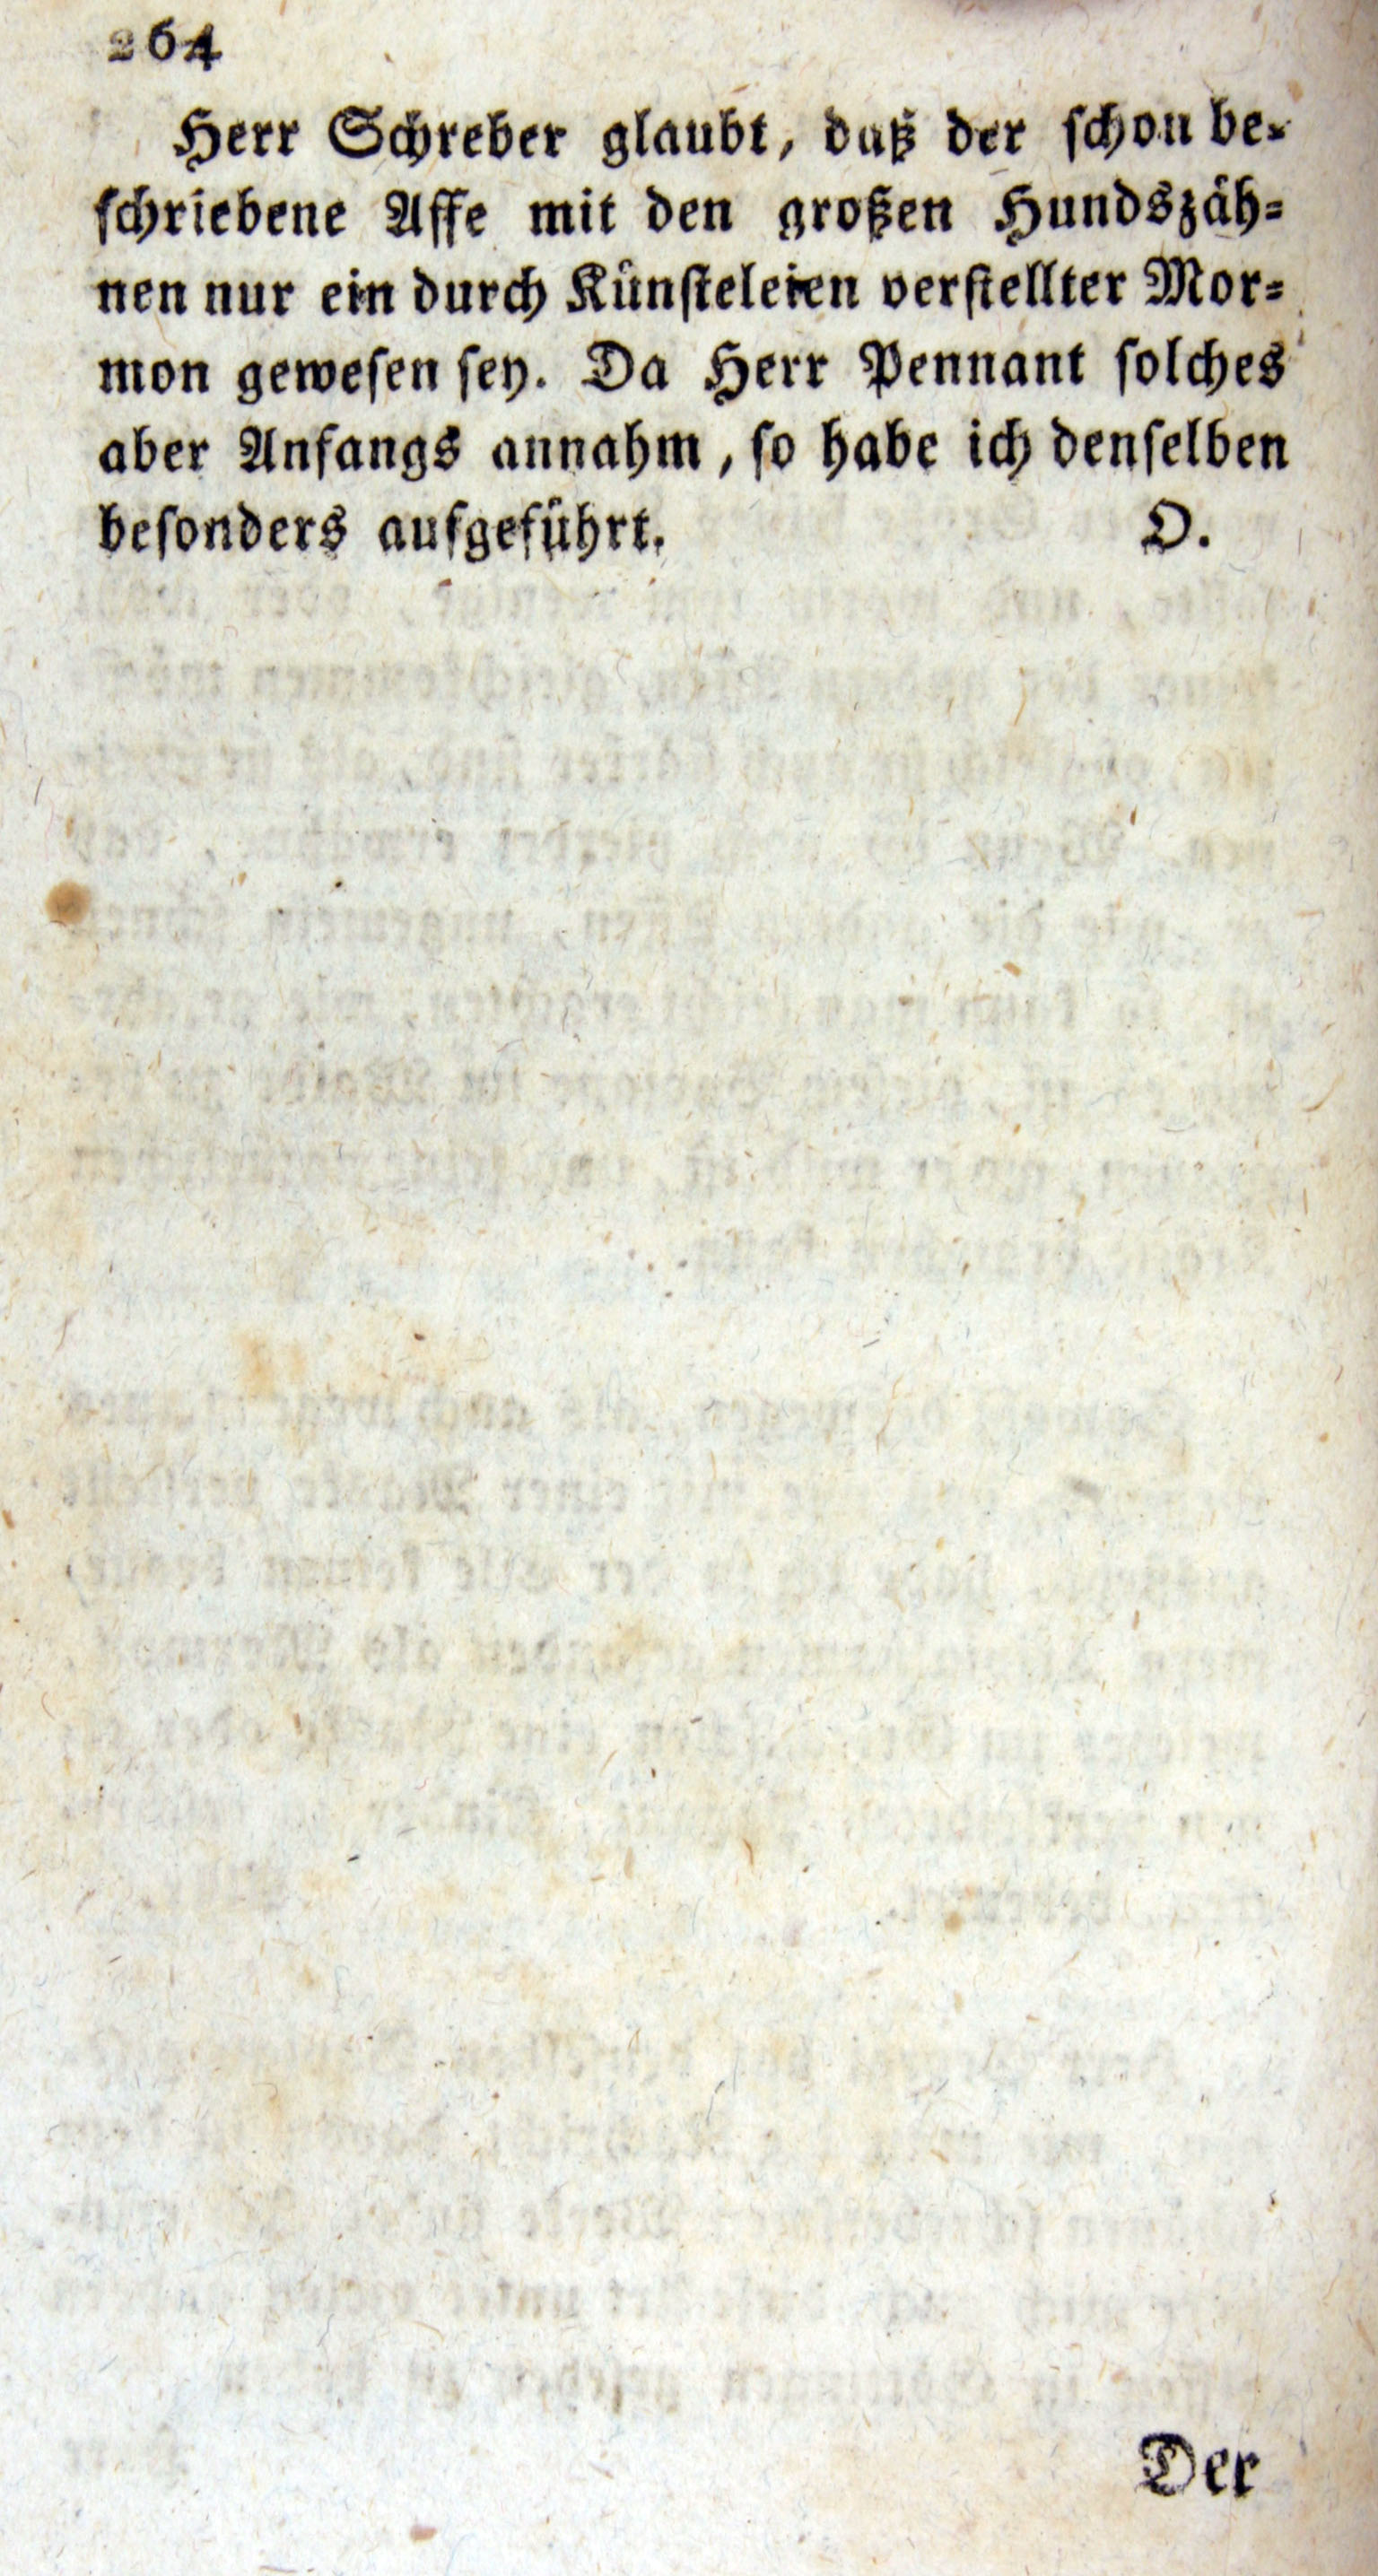 264
Herr Schreber glaubt, daß der schon be-
schriebene Affe mit den großen Hundszäh-
nen nur ein durch Künsteleien verstellter Mor-
mon gewesen sey. Da Herr Pennant solches
aber Anfangs annahm, so habe ich denselben
besonders aufgeführt. O.
Der